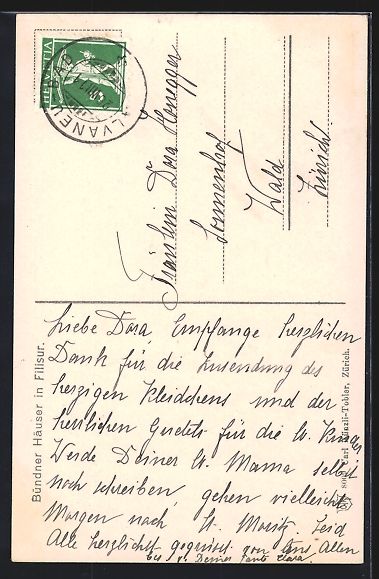 HELVETIA
ALVANEU
Fräulein Dora Honegger
Sonnenhof
Wald
Zürich.
Bündner Häuser in Filisur.
Carl Künzli-Tobler, Zürich.
Liebe Dora, Empfange herzlichen
Dank für die Zusendung des
herzigen Kleidchens und der
herrlichen Guetzli für die lb. Kinder
Werde Deiner lb. Mama selbst
noch schreiben, gehen vielleicht
Morgen nach St. Moritz. Seid
Alle herzlichst gegrüsst von uns Allen
bes. v. Deiner Tante Clara.